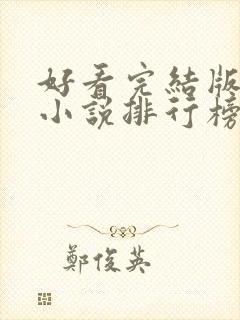 好看完結版
小說排行榜
鄭俊英